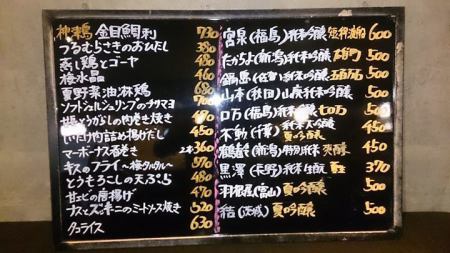 神津島 金目鯛刺 730
つるむらさきのおひたし 380
蒸し鶏とゴーヤ 480
梅水晶 460
夏野菜油淋鶏 680
ソフトシェルシュリンプのチリマヨ 700
甘長とうがらしの肉巻き焼き
しいたけ肉詰め揚げだし 450
マーボーナス春巻き 2本 360
キスのフライ〜梅タルタル〜 570
とうもろこしの天ぷら 480
甘エビの唐揚げ 470
ナスとズッキーニのミートソース焼き 520
タコライス 630
宮泉(福島)純米吟醸 600
たかちよ(新潟)純米吟醸 500
鍋島(佐賀)純米吟醸 500
山本(秋田)山廃純米吟醸 500
ロ万(福島)純米吟醸 七ロ万 500
不動(千葉)純米大吟醸 夏吟醸 450
鶴齢(新潟)特別純米 爽醇 450
黒澤(長野)純米生酛 370
羽根屋(富山)夏吟醸 500
結(茨城)夏吟醸 500